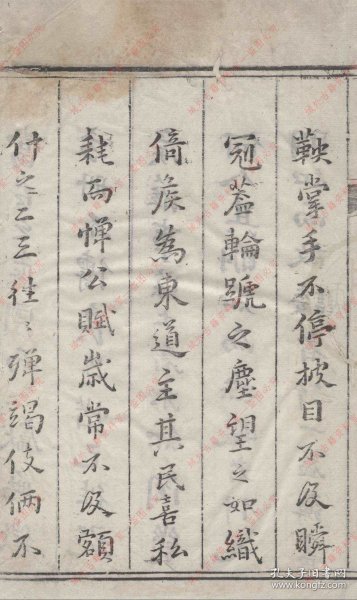 鞅掌手不停披目不及瞬
冠蓋輪蹏之塵望之如織
倚矦為東道主其民喜私
耗而憚公賦歲常不及額
什之二三往〻殫竭伎倆不
孔夫子旧书网